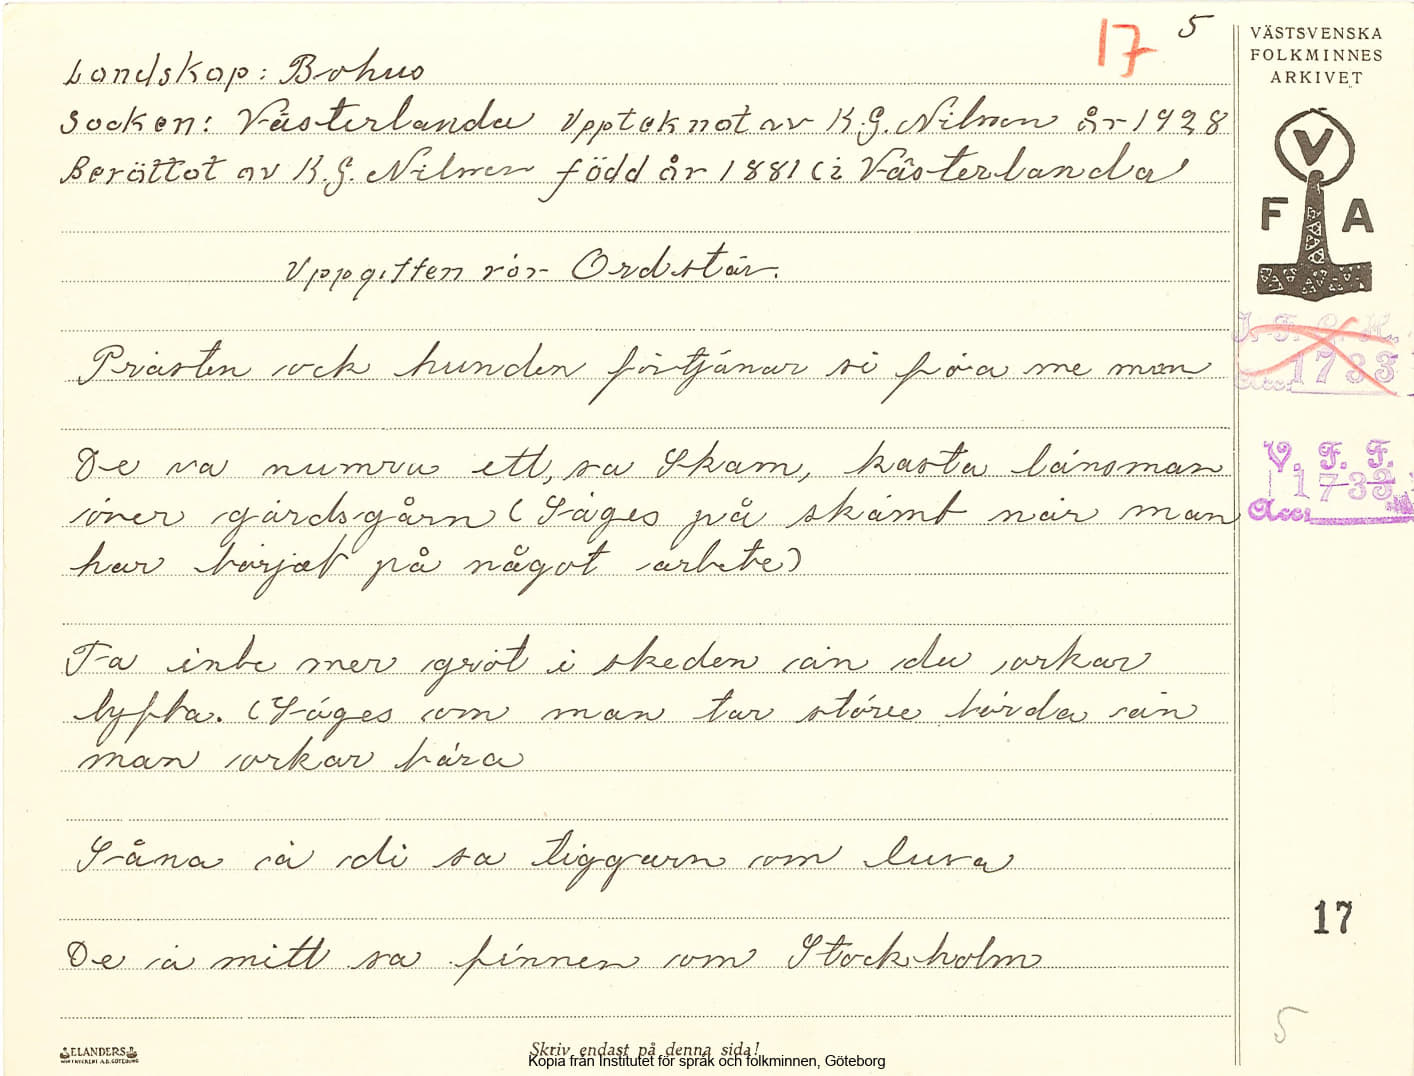 17 5
VÄSTSVENSKA
FOLKMINNES
ARKIVET
Landskap: Bohus
Socken: Västerlanda Uppteknat av K.G. Nilsson år 1928
Berättat av K.G. Nilsson född år 1881 i Västerlanda
V
F A
Uppgiften rör Ordstäv.
I. F. G. H.
Acc: 1733
Prästen ock hunden förtjänar si föa me mon
V. F. F.
1733
Acc:
De va numra ett, sa Skam, kasta länsman
över gärdsgårn (Säges på skämt när man
har börjat på något arbete)
Ta inte mer gröt i skeden än du orkar
lyfta. (Säges om man tar större börda än
man orkar bära
Såna ä di sa tiggarn om lusa
17
De ä mitt sa finnen om Stockholm
5
ELANDERS
Skriv endast på denna sida!
Kopia från Institutet för språk och folkminnen, Göteborg